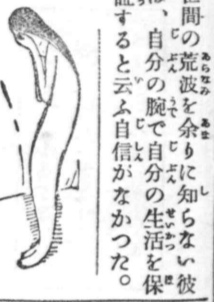 間の荒波を余りに知らない彼
、自分の腕で自分の生活を保
証すると云ふ自信がなかつた。